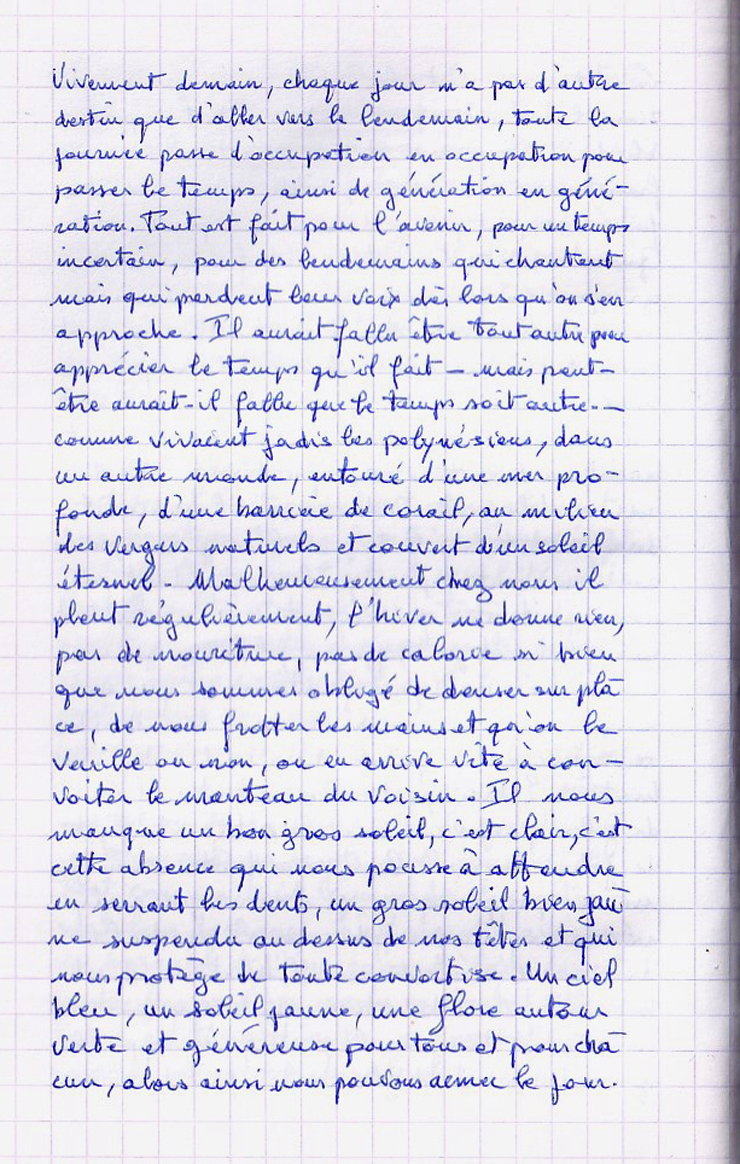 Vivement demain, chaque jour n'a pas d'autre
destin que d'aller vers le lendemain, toute la
journée passe d'occupation en occupation pour
passer le temps, ainsi de génération en géné-
ration. Tout est fait pour l'avenir, pour un temps
incertain, pour des lendemains qui chantent
mais qui perdent leur voix dès lors qu'on s'en
approche. Il aurait fallu être tout autre pour
apprécier le temps qu'il fait – mais peut-
être aurait-il fallu que le temps soit autre. –
comme vivaient jadis les polynésiens, dans
un autre monde, entouré d'une mer pro-
fonde, d'une barrière de corail, au milieu
des vergers naturels et couvert d'un soleil
éternel. Malheureusement chez nous il
pleut régulièrement, l'hiver ne donne rien,
pas de nourriture, pas de calorie si bien
que nous sommes obligé de danser sur pla
ce, de nous frotter les mains et qu'on le
veuille ou non, on en arrive vite à con-
voiter le manteau du voisin. Il nous
manque un bon gros soleil, c'est clair, c'est
cette absence qui nous pousse à attendre
en serrant les dents, un gros soleil bien jau
ne suspendu au dessus de nos têtes et qui
nous protège de toute convoitise. Un ciel
bleu, un soleil jaune, une flore autour
verte et généreuse pour tous et pour cha
cun, alors ainsi nous pouvons aimer le jour.